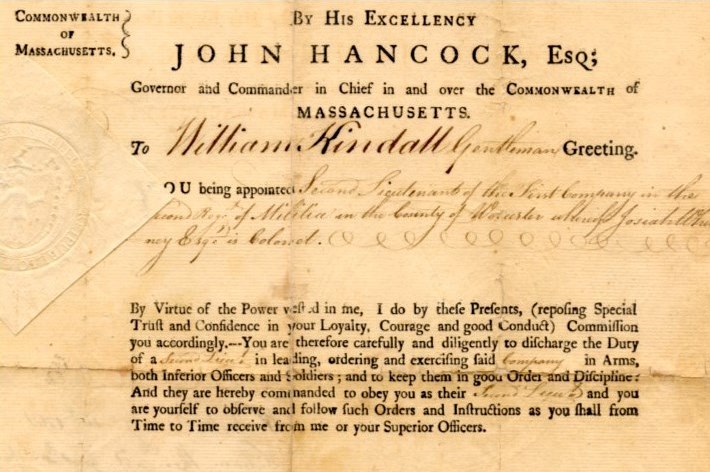 COMMONWEALTH
OF
MASSACHUSETTS.
BY HIS EXCELLENCY
JOHN HANCOCK, ESQ;
Governor and Commander in Chief in and over the COMMONWEALTH of
MASSACHUSETTS.
To William Kindall Gentleman Greeting.
OU being appointed Second Lieutenant of the First Company in the
cond Regt. of Militia in the County of Worcester whereof Josiah Whit
ney Esqr. is Colonel.
By Virtue of the Power vested in me, I do by these Presents, (reposing Special
Trust and Confidence in your Loyalty, Courage and good Conduct) Commission
you accordingly.--You are therefore carefully and diligently to discharge the Duty
of a Second Lieut. in leading, ordering and exercising said Company in Arms,
both Inferior Officers and Soldiers; and to keep them in good Order and Discipline:
And they are hereby commanded to obey you as their Second Lieut. and you
are yourself to observe and follow such Orders and Instructions as you shall from
Time to Time receive from me or your Superior Officers.